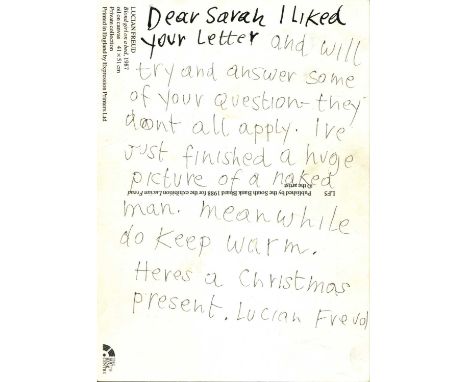 Dear Sarah I liked
your Letter and will
try and answer some
of your question- they
doont all apply. I've
Just finished a huge
picture of a naked
man. meanwhile
do keep warm.
Heres a Christmas
present. Lucian Freud
LUCIAN FREUD
Blond girl on a bed, 1987
oil on canvas 41 x 51 cm
Private collection
Printed in England by Expression Printers Ltd
LF5 Published by the South Bank Board 1988 for the exhibition Lucian Freud
© the artist